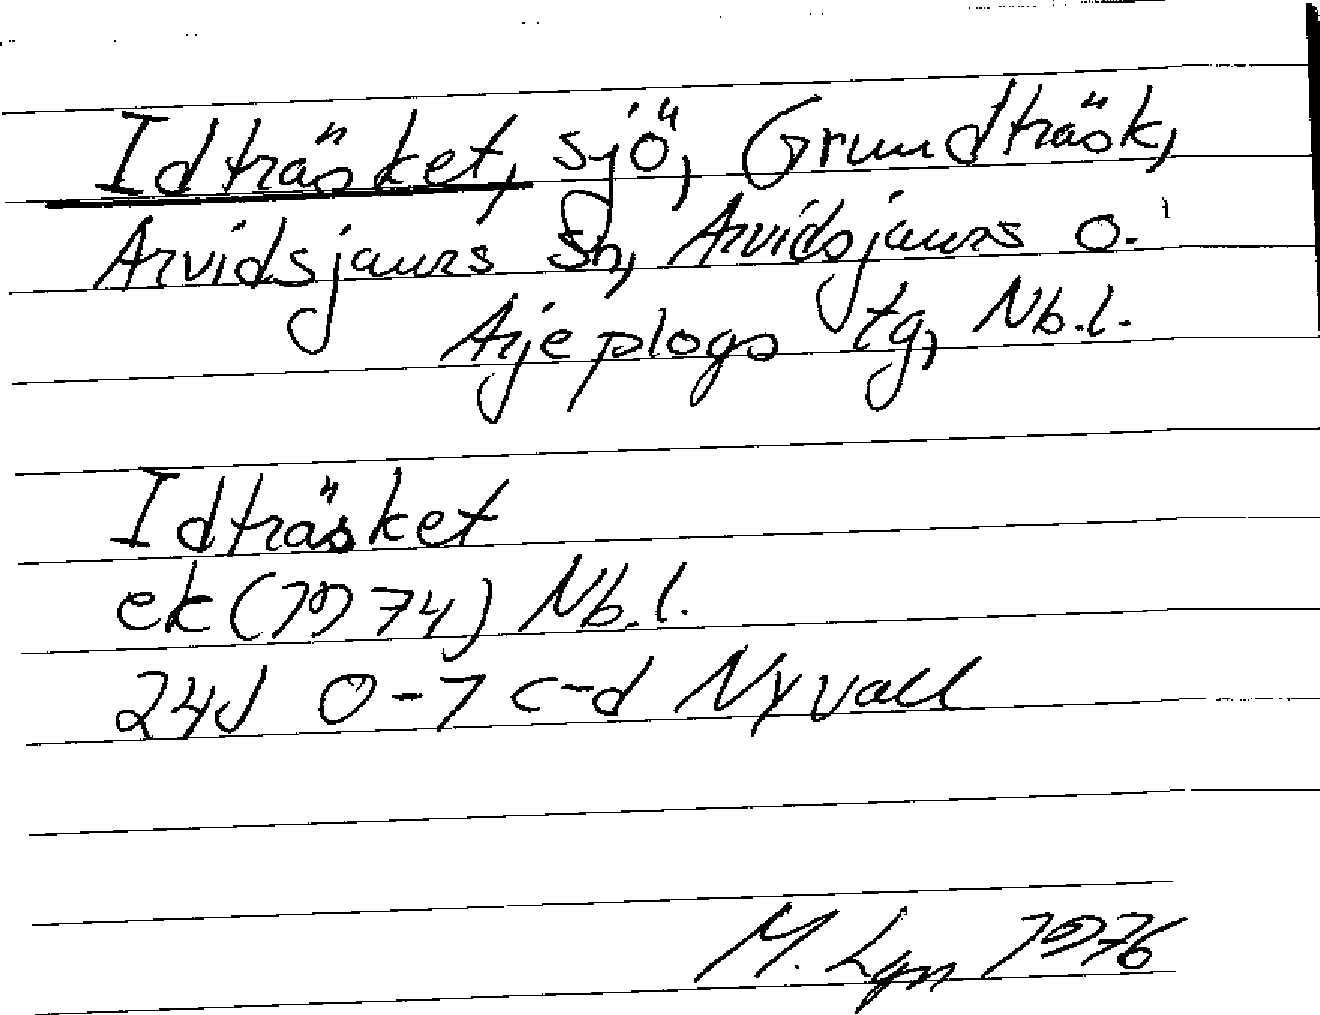 Idträsket, sjö, Grundträsk,
Arvidsjaurs sn, Arvidsjaurs o.
Arjeplogs tg, Nb.l.
Idträsket
ek (1974) Nb.l.
24J 0-1 c-d Nyvall
M. Lgn 1976